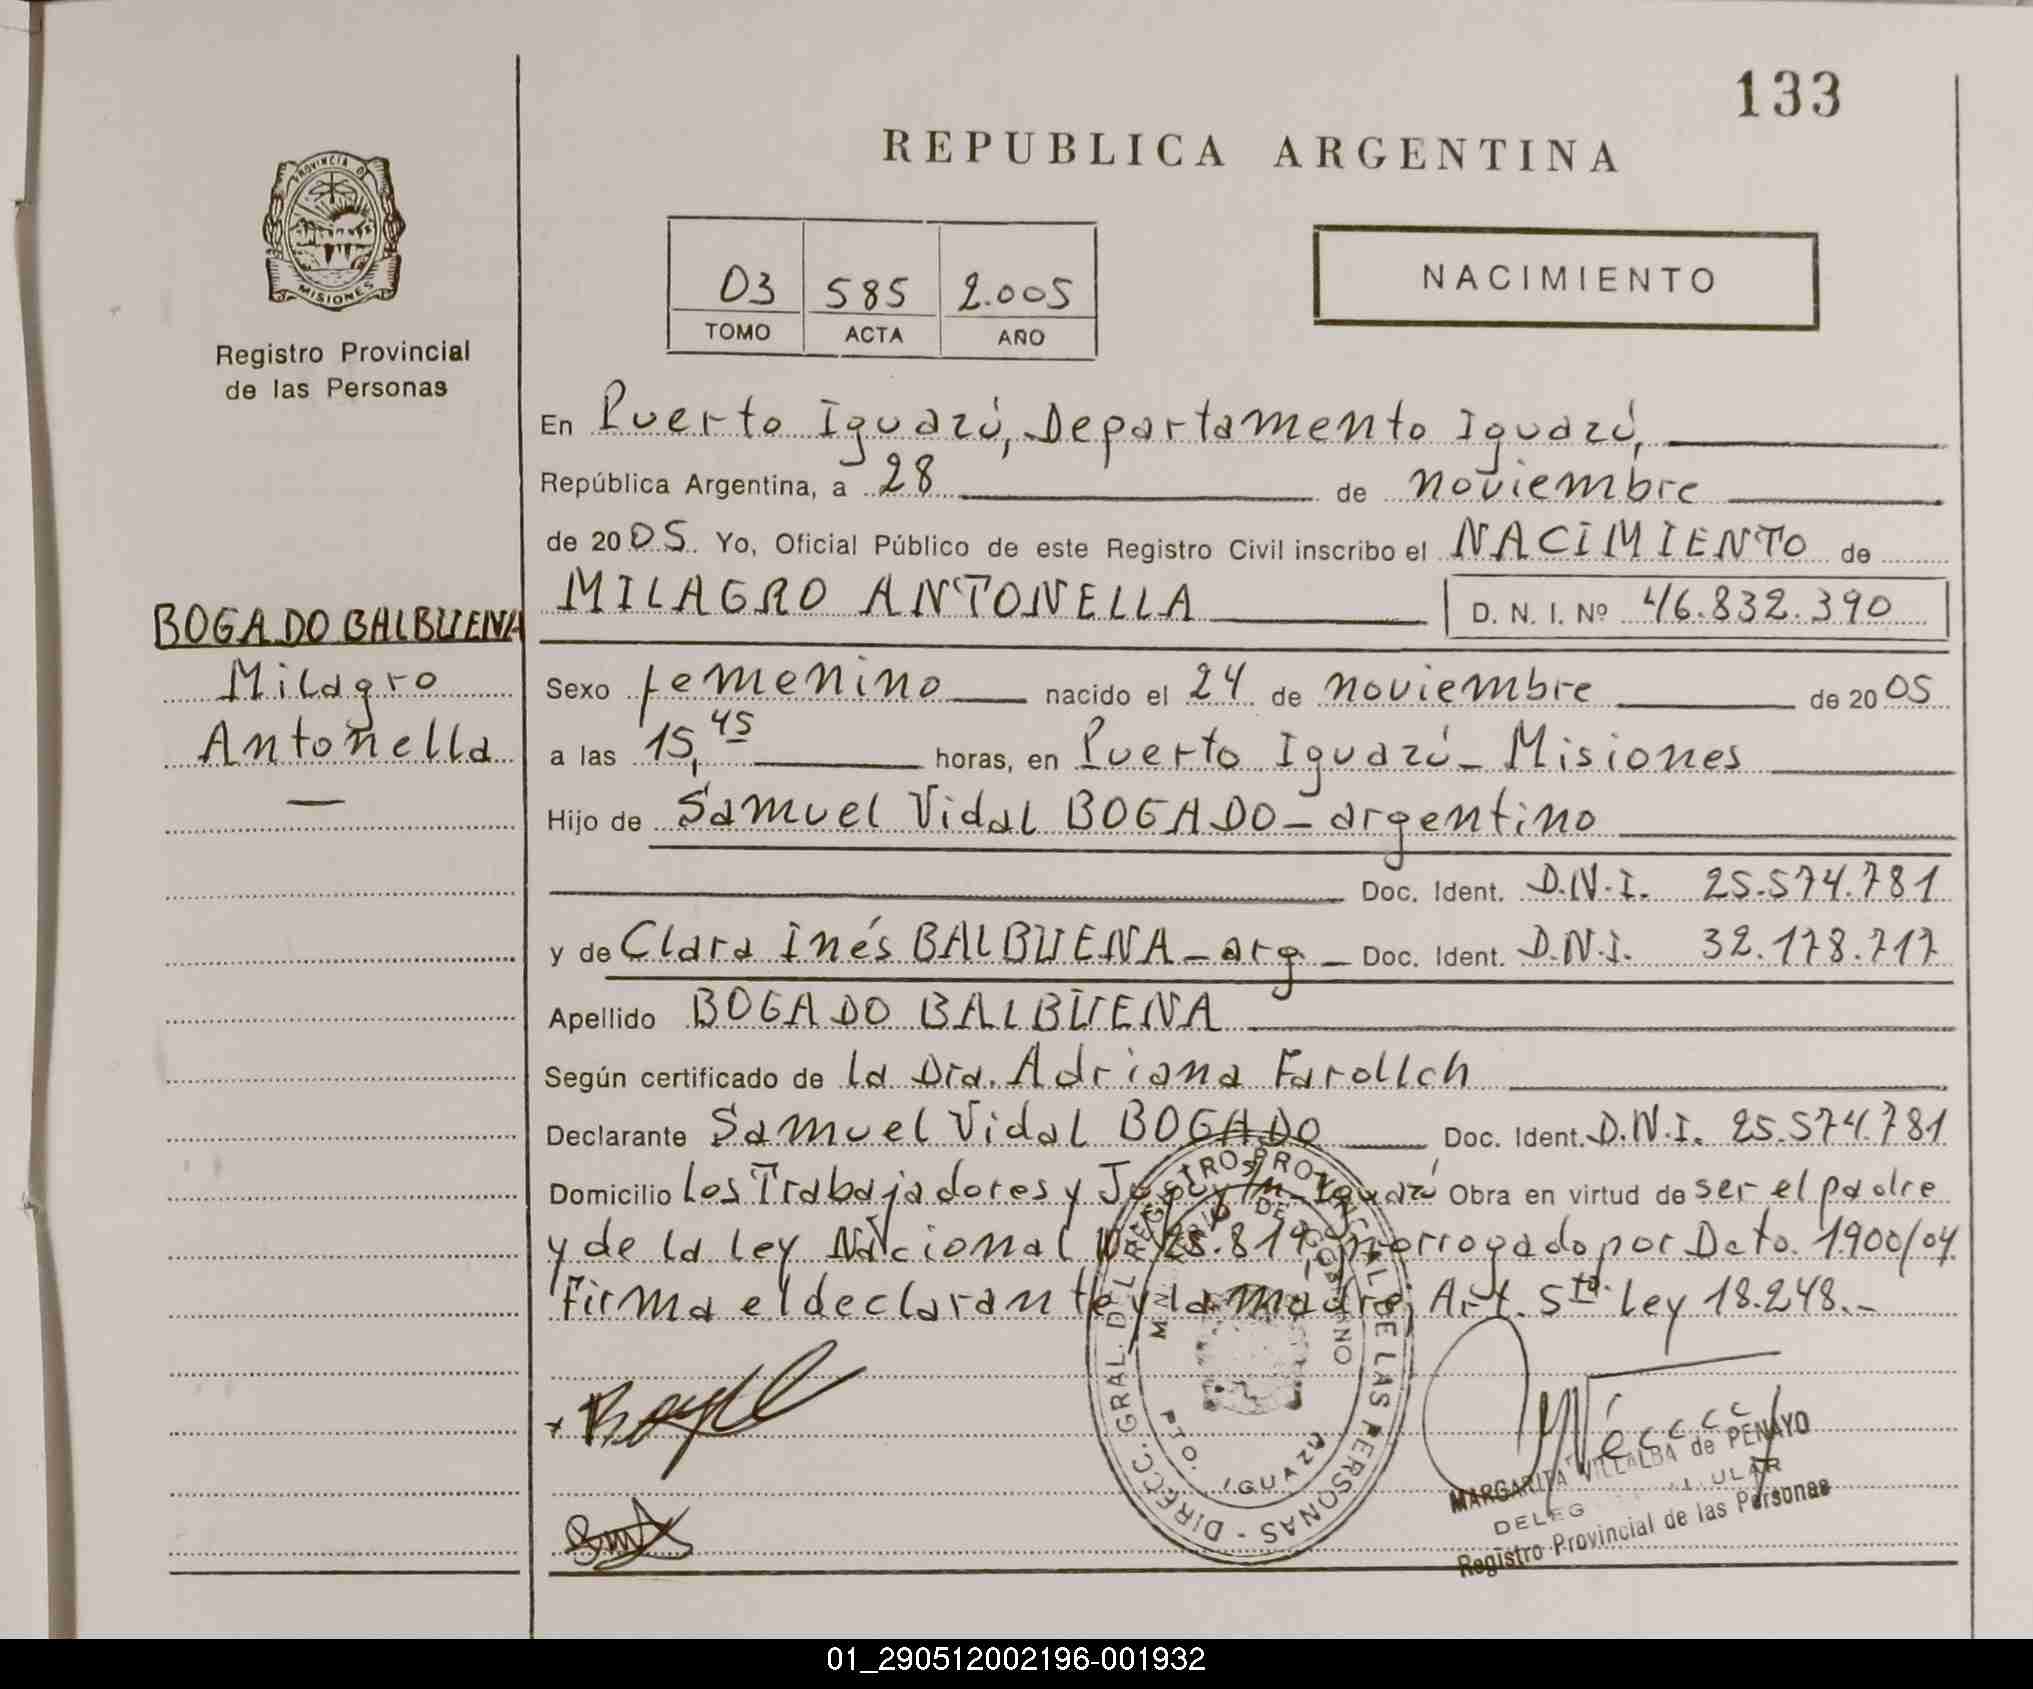 133
REPUBLICA ARGENTINA
PROVINCIA D
MISIONES
Registro Provincial
de las Personas
03 585 2.005
TOMO ACTA AÑO
NACIMIENTO
En Puerto Iguazú, Departamento Iguazú,
República Argentina, a 28 de noviembre
de 2005. Yo, Oficial Público de este Registro Civil inscribo el NACIMIENTO de
MILAGRO ANTONELLA D. N. I. Nº 46.832.390
BOGADO BALBUENA
Milagro
Antonella
Sexo femenino nacido el 24 de noviembre de 2005
a las 15,45 horas, en Puerto Iguazú - Misiones
Hijo de Samuel Vidal BOGADO - argentino
Doc. Ident. D.N.I. 25.574.781
y de Clara Inés BALBUENA - arg - Doc. Ident. D.N.I. 32.178.717
Apellido BOGADO BALBUENA
Según certificado de la Dra. Adriana Farollch
Declarante Samuel Vidal BOGADO Doc. Ident. D.N.I. 25.574.781
Domicilio Los Trabajadores y Iguazú Obra en virtud de ser el padre
y de la Ley Nacional 25.819 prorrogado por Dcto. 1900/04
Firma el declarante y la madre Art. 5to. Ley 18.248.-
DIRECC. GRAL. DEL REGISTRO PROVINCIAL DE LAS PERSONAS -
MINISTERIO DE GOBIERNO
PTO. IGUAZU
MARGARITA VILLALBA de PENAYO
Registro Provincial de las Personas
01_290512002196-001932